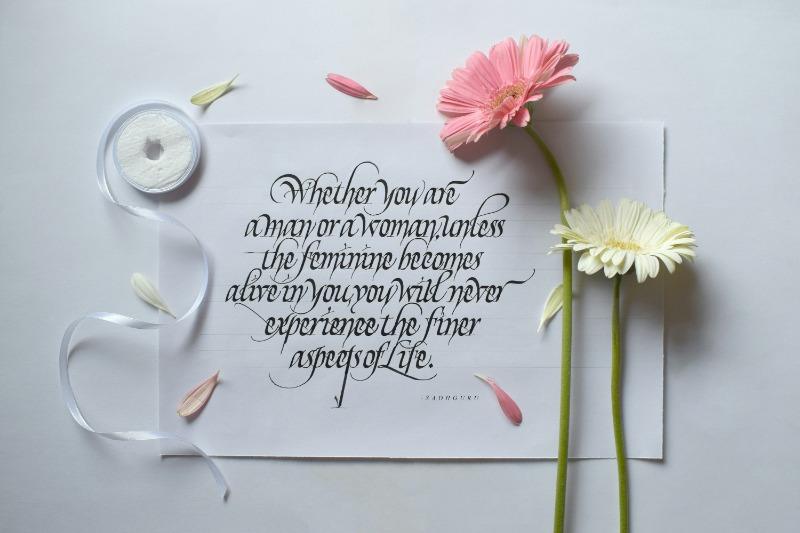 Whether you are
a man or a woman, unless
the feminine becomes
alive in you, you will never
experience the finer
aspects of Life.
-SADHGURU